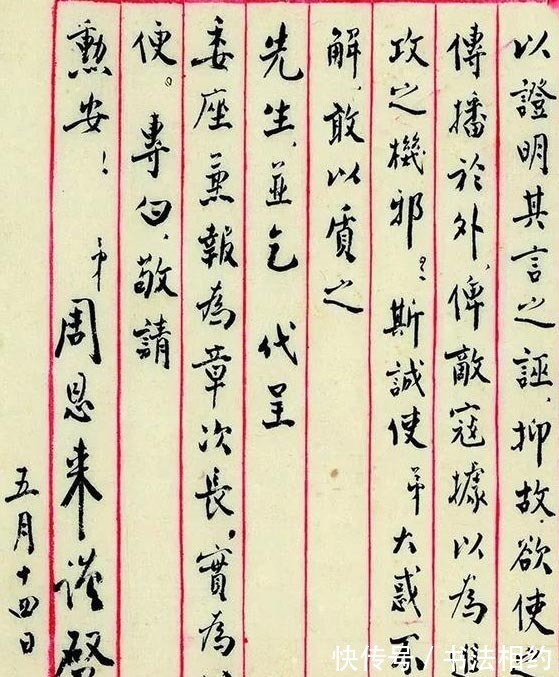 以證明其言之誣，抑故欲使之
傳播於外，俾敵寇據以為進
攻之機邪？斯誠使弟大惑不
解，敢以質之
先生，並乞代呈
委座兼報為章次長，實為
便。專白，敬請
勳安！
弟周恩来謹啓
五月十四日
快传号／书法相约